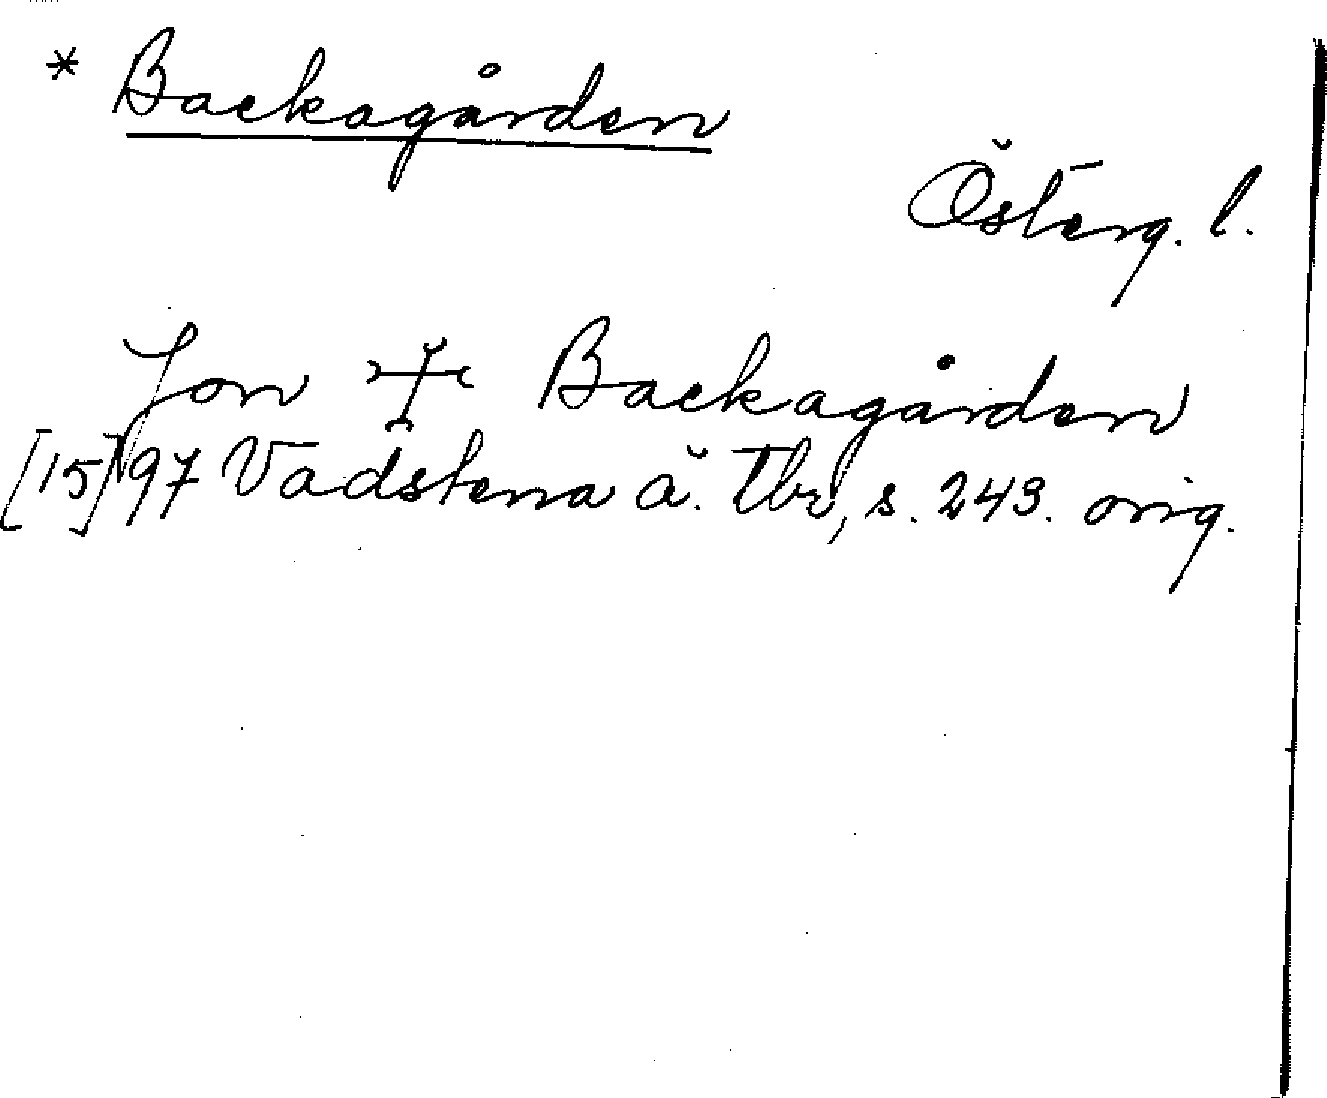 * Backagården
Österg. l.
Jon ☩ Backagården
[15]97 Vadstena ä. Tbr, s. 243. orig.